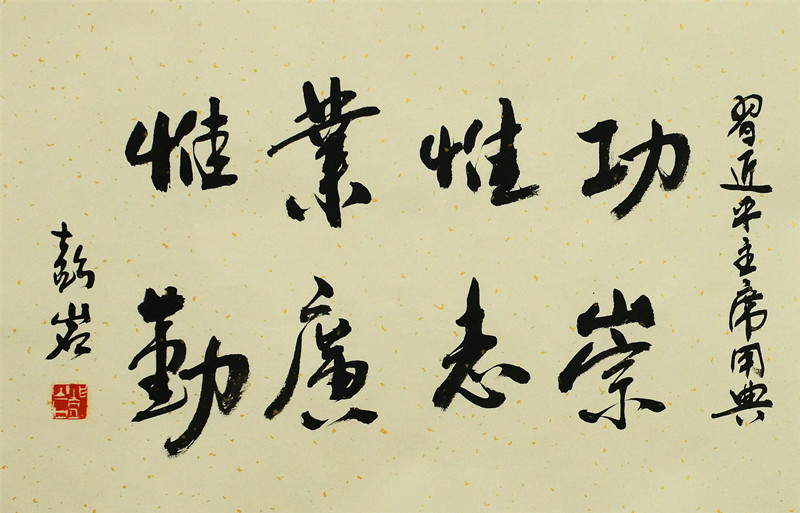 習近平主席用典
功崇
惟志
業廣
惟勤
彭岩